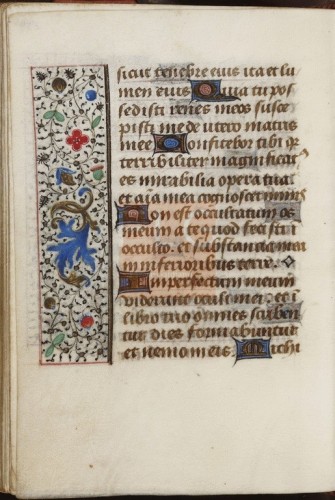 sicut tenebre eius ita et lu
men eius Quia tu pos
sedisti renes meos susce
pisti me de utero matris
mee Confitebor tibi quia
terribiliter magnificat
es mirabilia opera tua
et aĩa mea cognoscet nimis
Non est occultatum os
meum a te quod fecisti ĩ
occulto et substantia mea
in inferioribus terre
Imperfectum meum
viderunt oculi mei et ĩ
libro tuo omnes scriben
tur dies formabuntur
et nemo in eis Michi